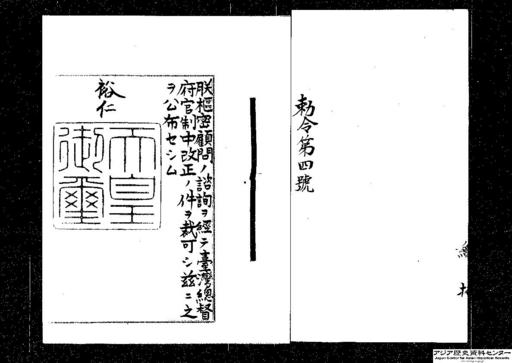 勅令第四號
朕樞密顧問ノ諮詢ヲ經テ臺灣總督
府官制中改正ノ件ヲ裁可シ茲ニ之
ヲ公布セシム
裕仁
天皇
御璽
アジア歴史資料センター
Japan Center for Asian Historical Records